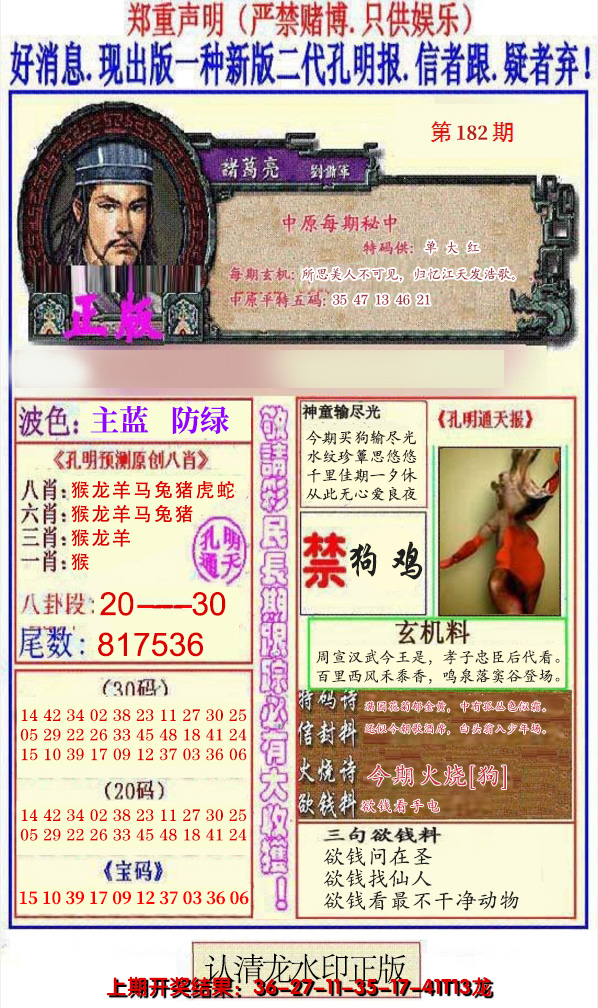 郑重声明（严禁赌博.只供娱乐）
好消息.现出版一种新版二代孔明报.信者跟.疑者弃！
第182期
諸葛亮 劉備軍
中原每期秘中
特码供：单大红
每期玄机：所思美人不可见，归忆江天发浩歌。
中原平特五码：35 47 13 46 21
正版
波色：主蓝 防绿
《孔明预测原创八肖》
八肖：猴龙羊马兔猪虎蛇
六肖：猴龙羊马兔猪
三肖：猴龙羊
一肖：猴
孔明通天
八卦段：20----30
尾数：817536
（30码）
14 42 34 02 38 23 11 27 30 25
05 29 22 26 33 45 48 18 41 24
15 10 39 17 09 12 37 03 36 06
（20码）
14 42 34 02 38 23 11 27 30 25
05 29 22 26 33 45 48 18 41 24
《宝码》
15 10 39 17 09 12 37 03 36 06
敬請彩民長期跟踪必有大收獲！
神童输尽光
今期买狗输尽光
水纹珍簟思悠悠
千里佳期一夕休
从此无心爱良夜
《孔明通天报》
禁 狗 鸡
玄机料
周宣汉武今王是，孝子忠臣后代看。
百里西风禾黍香，鸣泉落窦谷登场。
特码诗 满园花菊郁金黄，中有孤丛色似霜。
信封料 还似今朝歌酒席，白头翁入少年场。
火烧诗 今期火烧[狗]
欲钱料 欲钱看手电
三句欲钱料
欲钱问在圣
欲钱找仙人
欲钱看最不干净动物
认清龙水印正版
上期开奖结果：36-27-11-35-17-41T13龙